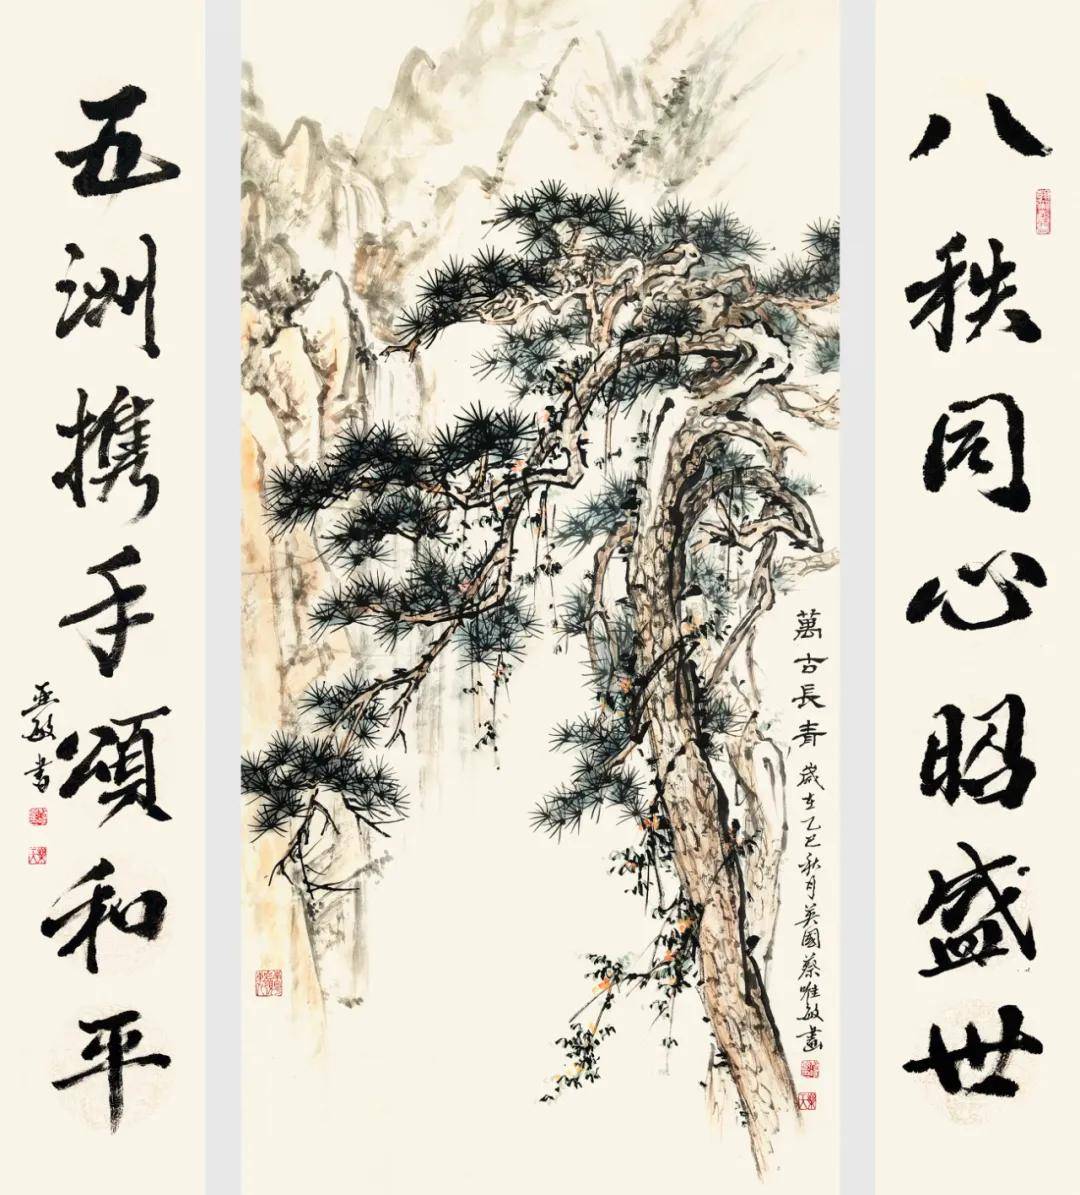 八秩同心昭盛世
萬古長青
歲在乙巳秋月英國蔡唯敏畫
五洲携手頌和平
敏書